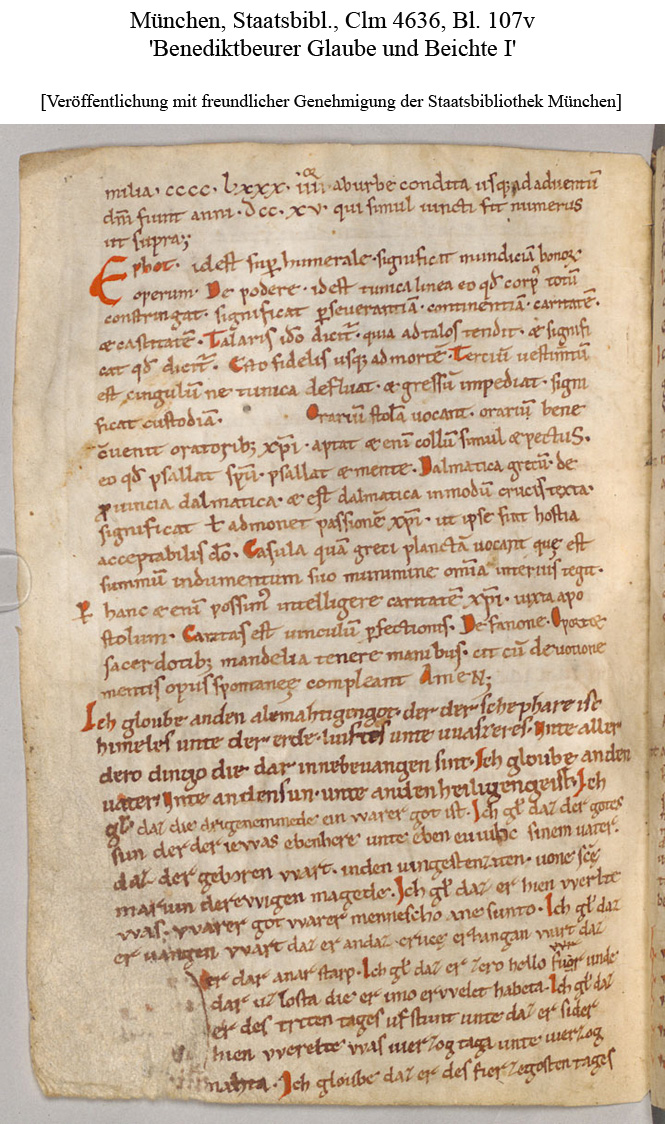 München, Staatsbibl., Clm 4636, Bl. 107v
'Benediktbeurer Glaube und Beichte I'
[Veröffentlichung mit freundlicher Genehmigung der Staatsbibliothek München]
milia· cccc· lxxx· iiii· aburbe condita usq; ad aduentū
dn̄i fiunt anni· dcc· xv· qui simul iuncti fit numerus
ut supra;
Ephot· idest sup̄ humerale· significat mundiciā bonoꝝ
operum· De podere· idest tunica linea eo qd̄ corp̄ totū
constringat· significat ꝑseuerantiā· continentiā· caritatē·
æ castitatē· Talaris id̄o dicit̄· quia ad talos tendit· æ signifi
cat qd̄ dicit̄· Esto fidelis usq; ad mortē· Terciū uestim̄tū
est cingulū ne tunica defluat· æ gressū impediat· signi
ficat custodiam· Orariū stolā uocant· orariū bene
c̄uenit oratorib; xp̄i· aptat æ enī collū simul æ pectus·
eo qd̄ psallat sp̄u· psallat æ mente· Dalmatica grecū· de
ꝓuincia dalmatica· æ est dalmatica inmodū crucis texta·
significat ł admonet passionē xp̄i· ut ipse sint hostia
acceptabilis dō· Casula quā greci planctā uocant quę est
summū indumentum suo munimine om̄ia interius tegit·
ꝑ hanc æ enī possim᷒ intelligere caritatē xp̄i· iuxta apo
stolum· Caritas est uinculū ꝑfectionis· De fanone· Oportæ
sacerdotib; mandelia tenere manibus· cū deuotione
mentis opus spontaneę compleant Amen;
Ich gloube anden alemahtigengot· der der schephare ist
himeles unte der erde· luftes unte uuasseres· unte aller
dero dingo die dar innebeuangen sint· Ich gloube anden
uater unte andensun· unte andenheiligengeist· Ich
gł daz die drigenemmede ein warer got ist· Ich gł daz der gotes
sun der der iewas ebenhere unte eben euuihc sinem uater·
daz der geboren wart· inden iungestenziten· uone scę
mariun derewigen magede· Ich gł daz er hien werlte
was· warer got warer mennescho ane sunto· Ich gł daz
er uangen wart daz er andaz cruce erhangan wart daz
er dar anar starp· Ich gł daz er zero hello fuor unde
dar uz losta die er imo erwelet habeta· Ich gł daz
er des triten tages uf stunt unte daz er sider
hien werelte was uierzog taga unte uierzog
nahta· Ich gloube daz er des fierzegosten tages